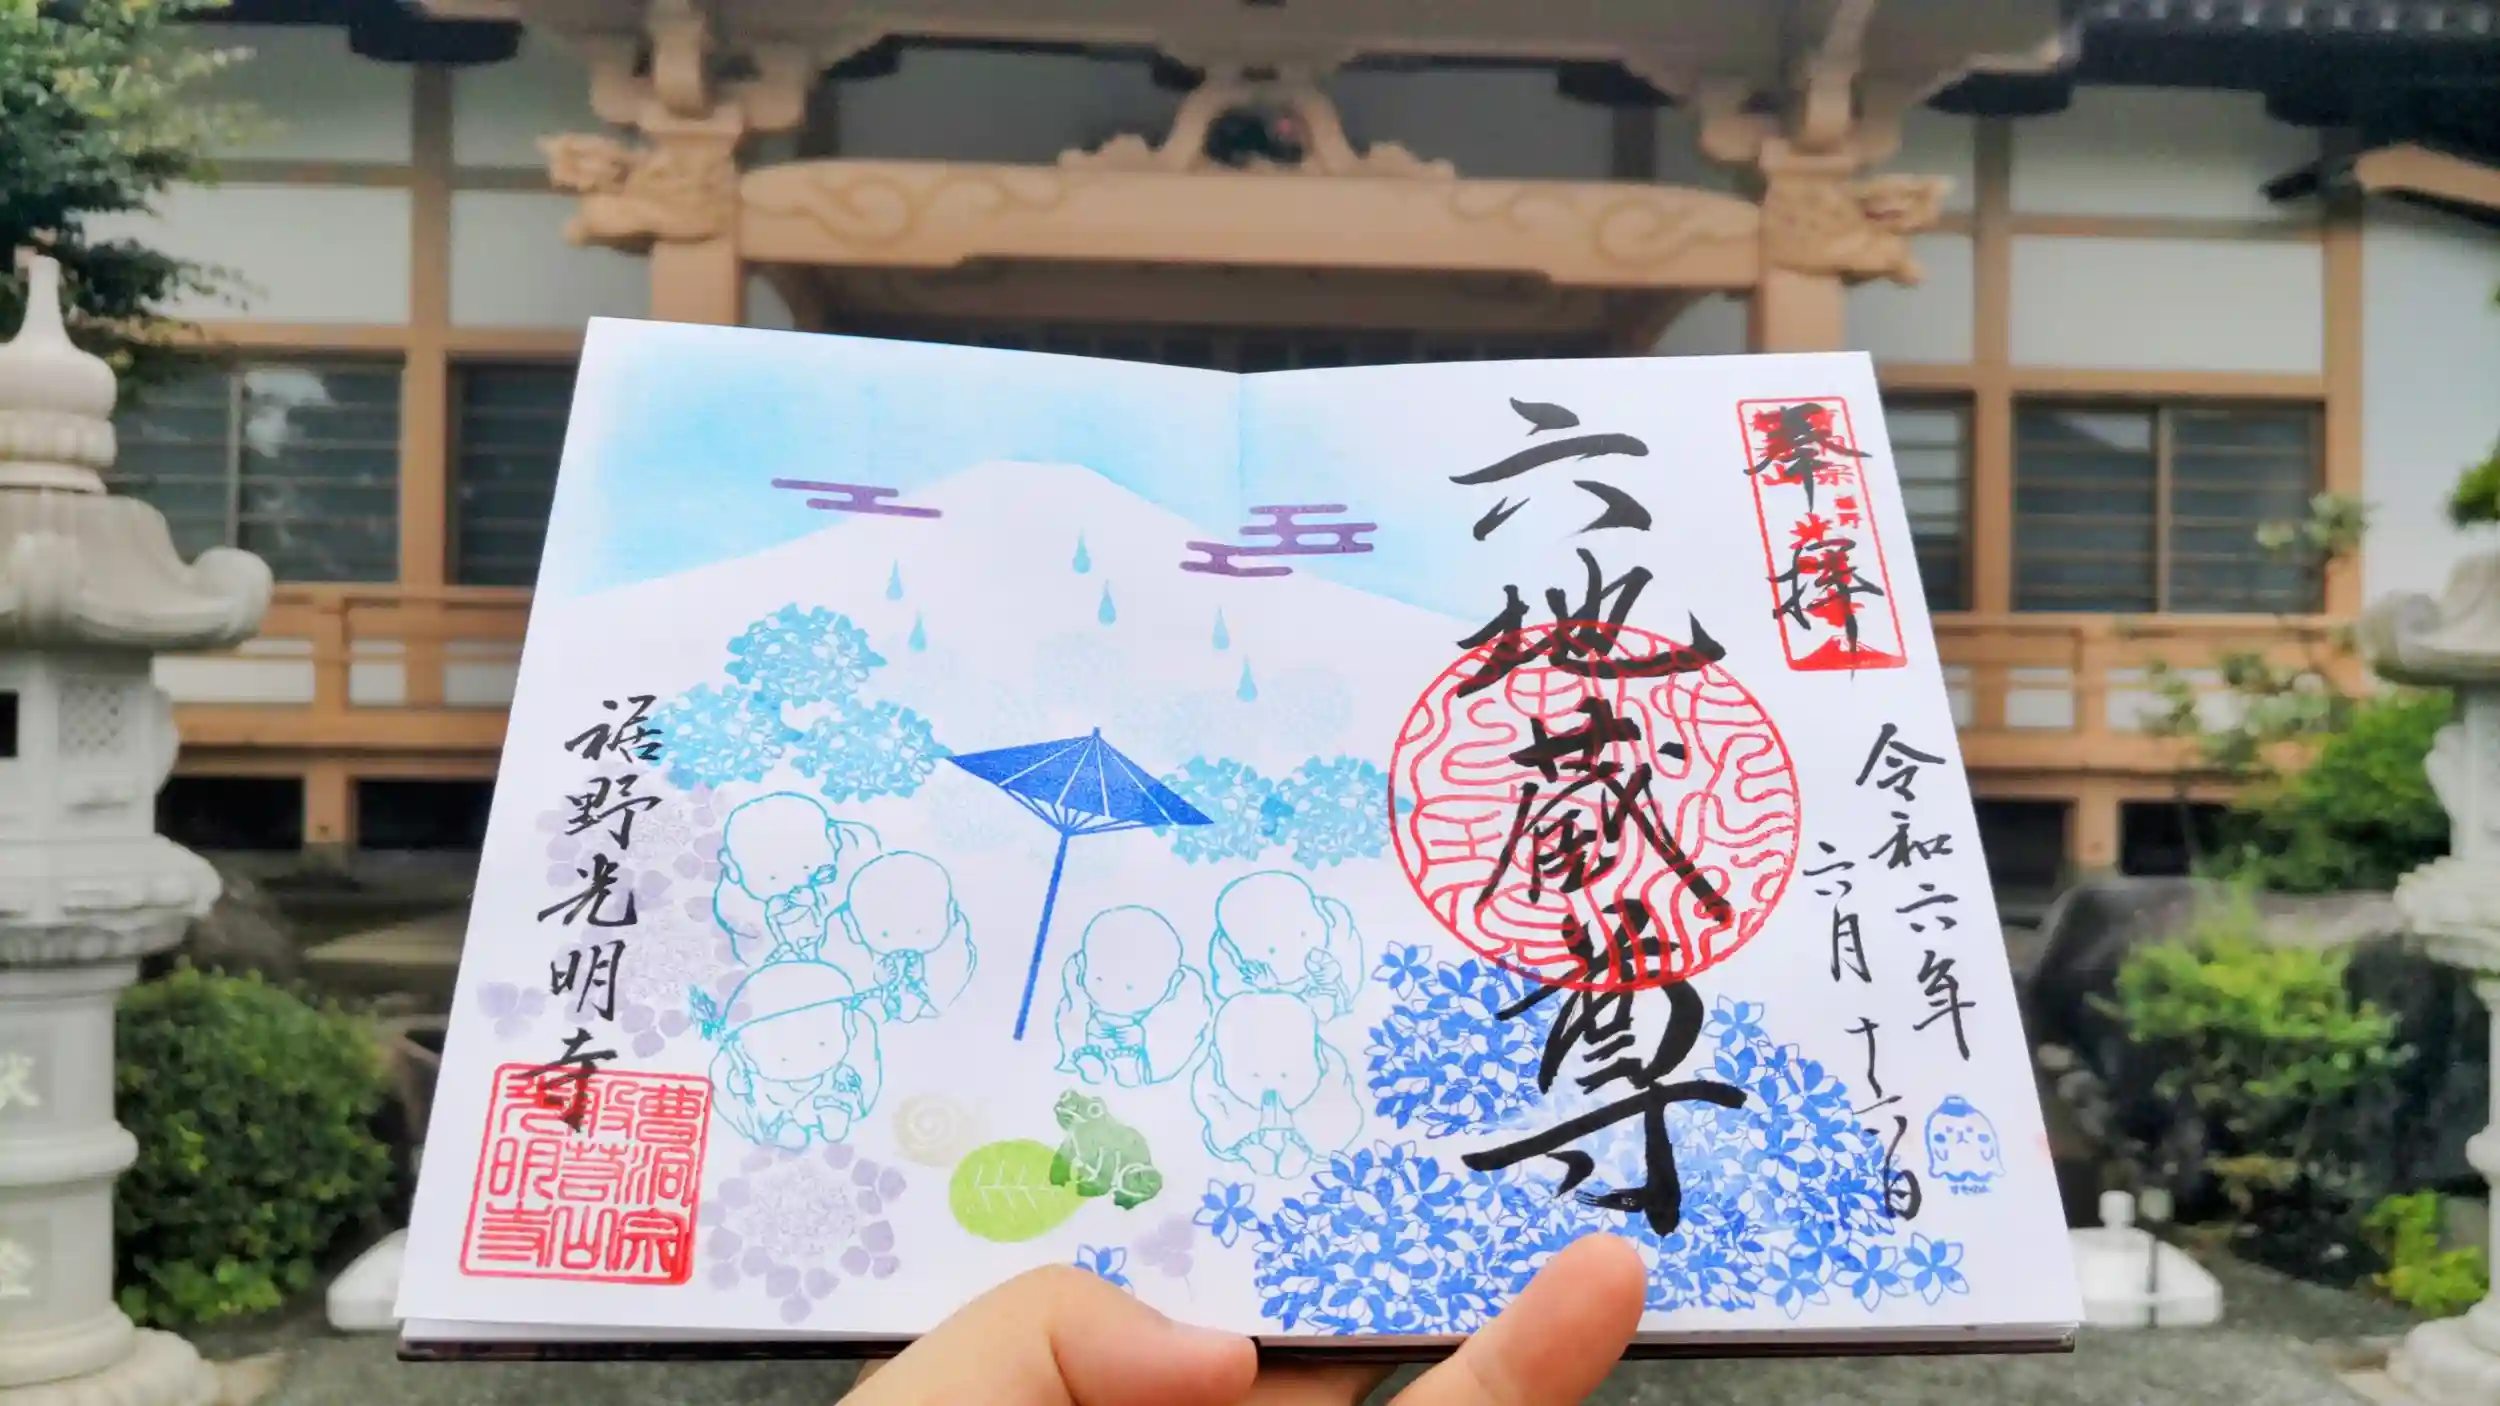 奉拝
令和六年
六月十六日
六地蔵尊
裾野光明寺
曹洞宗
般若山
光明寺